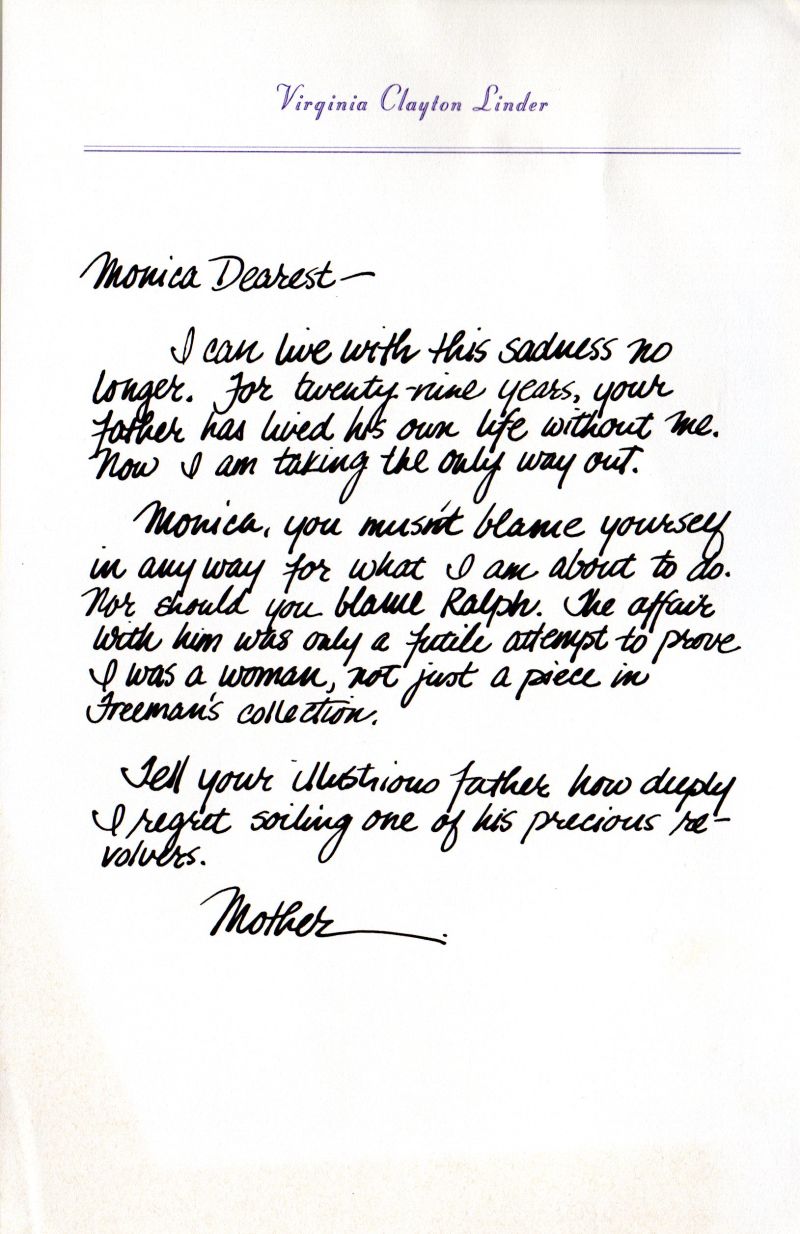 Virginia Clayton Linder
Monica Dearest—
I can live with this sadness no
longer. For twenty-nine years, your
father has lived his own life without me.
Now I am taking the only way out.
Monica, you musn't blame yourself
in any way for what I am about to do.
Nor should you blame Ralph. The affair
with him was only a futile attempt to prove
I was a woman, not just a piece in
Freeman's collection.
Tell your illustrious father how deeply
I regret soiling one of his precious re-
volvers.
Mother